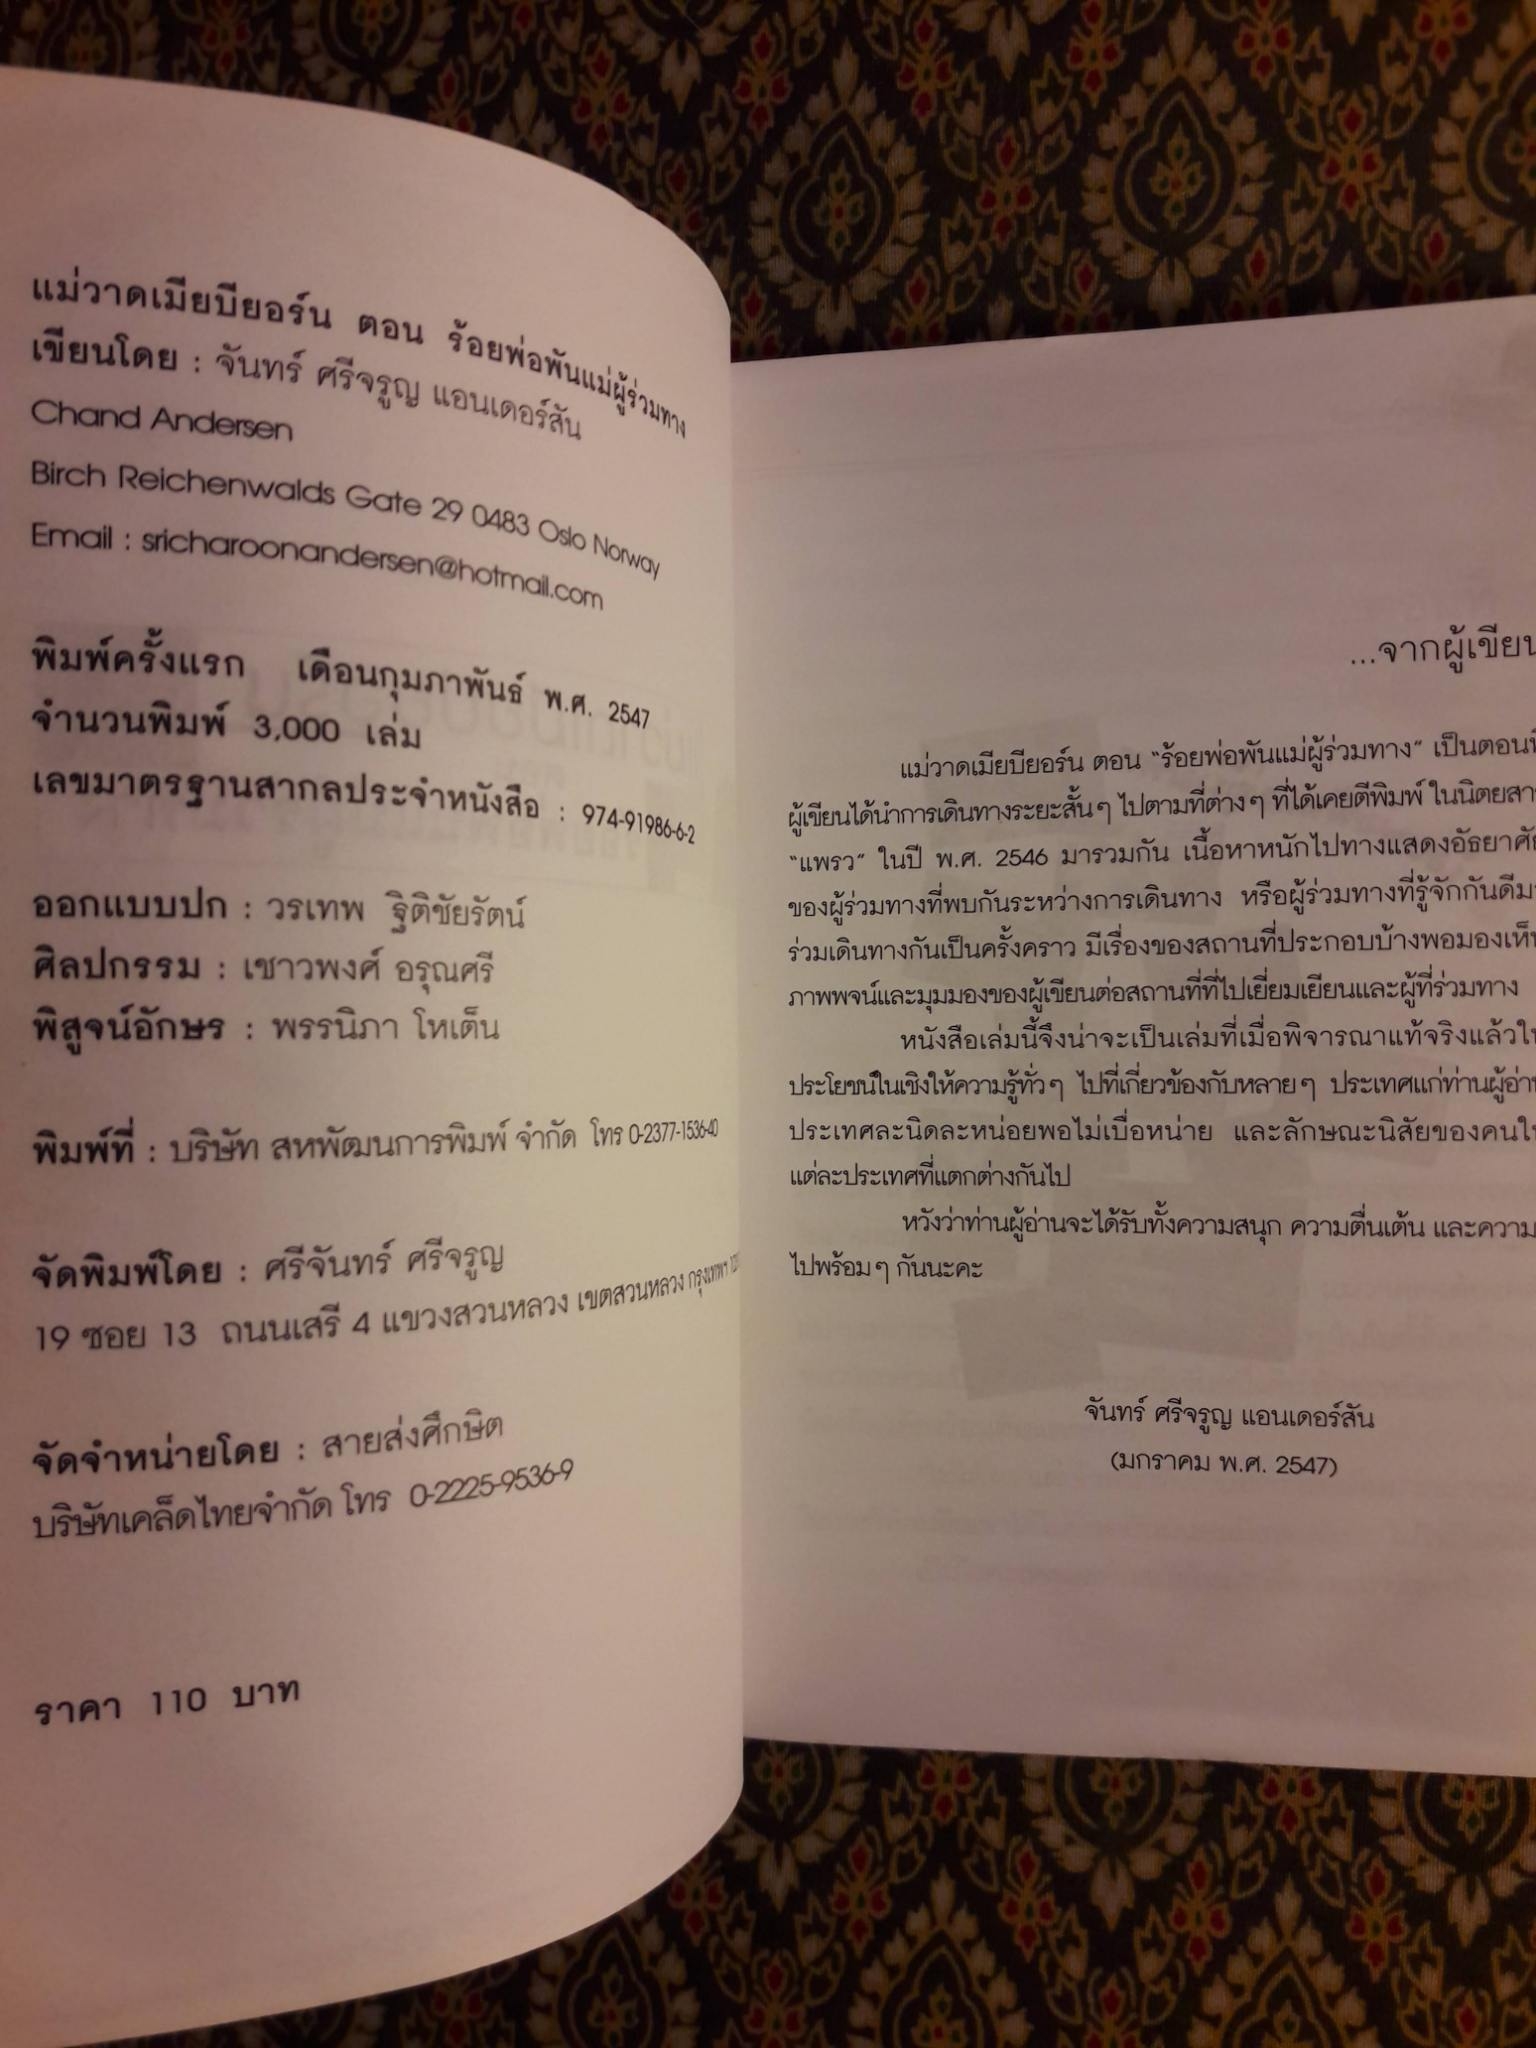 แม่วาดเมียบียอร์น ตอน ร้อยพ่อพันแม่ผู้ร่วมทาง
เขียนโดย : จันทร์ ศรีจรูญ แอนเดอร์สัน
Chand Andersen
Birch Reichenwalds Gate 29 0483 Oslo Norway
Email : sricharoonandersen@hotmail.com
พิมพ์ครั้งแรก เดือนกุมภาพันธ์ พ.ศ. 2547
จำนวนพิมพ์ 3,000 เล่ม
เลขมาตรฐานสากลประจำหนังสือ : 974-91986-6-2
ออกแบบปก : วรเทพ ฐิติชัยรัตน์
ศิลปกรรม : เชาวพงศ์ อรุณศรี
พิสูจน์อักษร : พรรนิภา โหเต็น
พิมพ์ที่ : บริษัท สหพัฒนการพิมพ์ จำกัด โทร 0-2377-1536-40
จัดพิมพ์โดย : ศรีจันทร์ ศรีจรูญ
19 ซอย 13 ถนนเสรี 4 แขวงสวนหลวง เขตสวนหลวง กรุงเทพฯ
จัดจำหน่ายโดย : สายส่งศึกษิต
บริษัทเคล็ดไทยจำกัด โทร 0-2225-9536-9
ราคา 110 บาท
...จากผู้เขียน
แม่วาดเมียบียอร์น ตอน "ร้อยพ่อพันแม่ผู้ร่วมทาง" เป็นตอนที่
ผู้เขียนได้นำการเดินทางระยะสั้นๆ ไปตามที่ต่างๆ ที่ได้เคยตีพิมพ์ ในนิตยสาร
"แพรว" ในปี พ.ศ. 2546 มารวมกัน เนื้อหาหนักไปทางแสดงอัธยาศัย
ของผู้ร่วมทางที่พบกันระหว่างการเดินทาง หรือผู้ร่วมทางที่รู้จักกันดีมา
ร่วมเดินทางกันเป็นครั้งคราว มีเรื่องของสถานที่ประกอบบ้างพอมองเห็น
ภาพพจน์และมุมมองของผู้เขียนต่อสถานที่ที่ไปเยี่ยมเยียนและผู้ที่ร่วมทาง
หนังสือเล่มนี้จึงน่าจะเป็นเล่มที่เมื่อพิจารณาแท้จริงแล้วให้
ประโยชน์ในเชิงให้ความรู้ทั่วๆ ไปที่เกี่ยวข้องกับหลายๆ ประเทศแก่ท่านผู้อ่าน
ประเทศละนิดละหน่อยพอไม่เบื่อหน่าย และลักษณะนิสัยของคนใน
แต่ละประเทศที่แตกต่างกันไป
หวังว่าท่านผู้อ่านจะได้รับทั้งความสนุก ความตื่นเต้น และความ
ไปพร้อมๆ กันนะคะ
จันทร์ ศรีจรูญ แอนเดอร์สัน
(มกราคม พ.ศ. 2547)